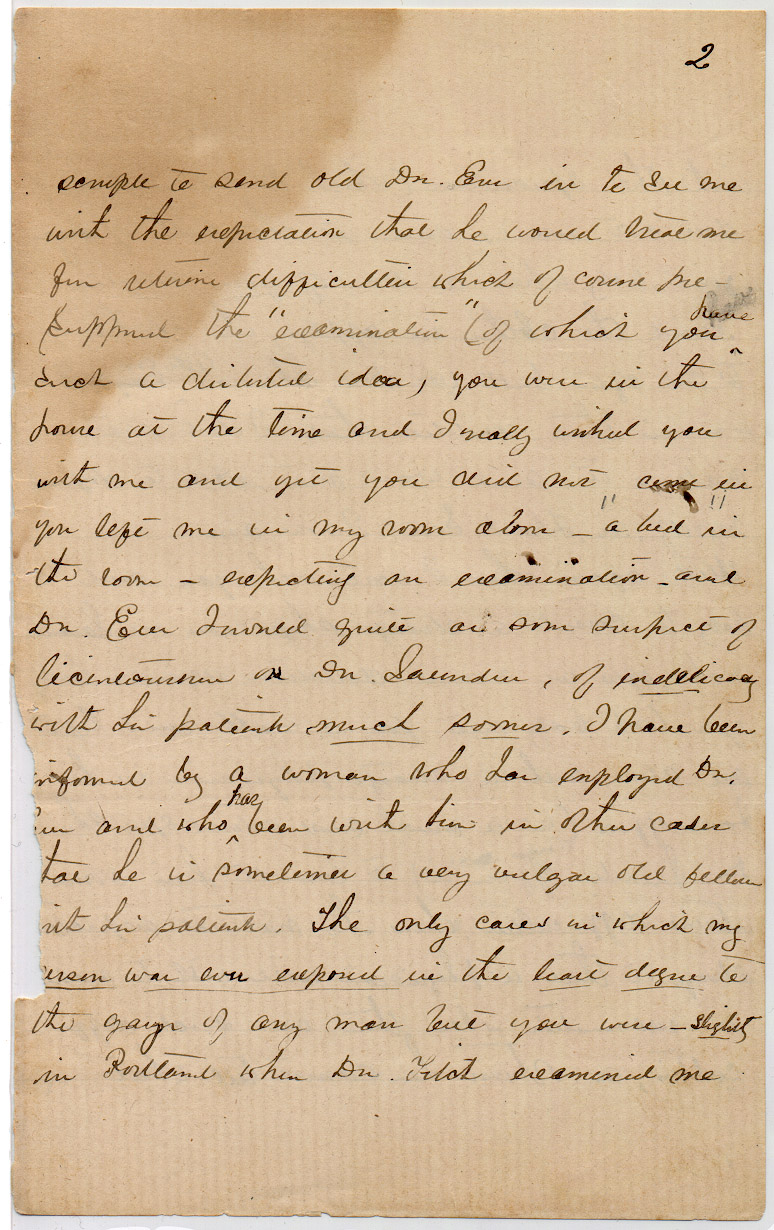 2
scruple to send old Dr. Eve in to see me
with the expectation that he would treat me
for uterine difficulties which of course pre-
supposed the "examination" (of which you have
such a distorted idea, you were in the
house at the time and I really wished you
with me and yet you did not come in
you left me in my room alone — "a bed" in
the room — expecting an examination — and
Dr. Eve I would quite as soon suspect of
licentiousness as Dr. Saunders, of indelicacy
with his patients much sooner. I have been
informed by a woman who has employed Dr.
Eve and who has been with him in other cases
that he is sometimes a very vulgar old fellow
with his patients. The only cases in which my
person was ever exposed in the least degree to
the gaze of any man but you were — slightly
in Portland when Dr. Fitch examined me